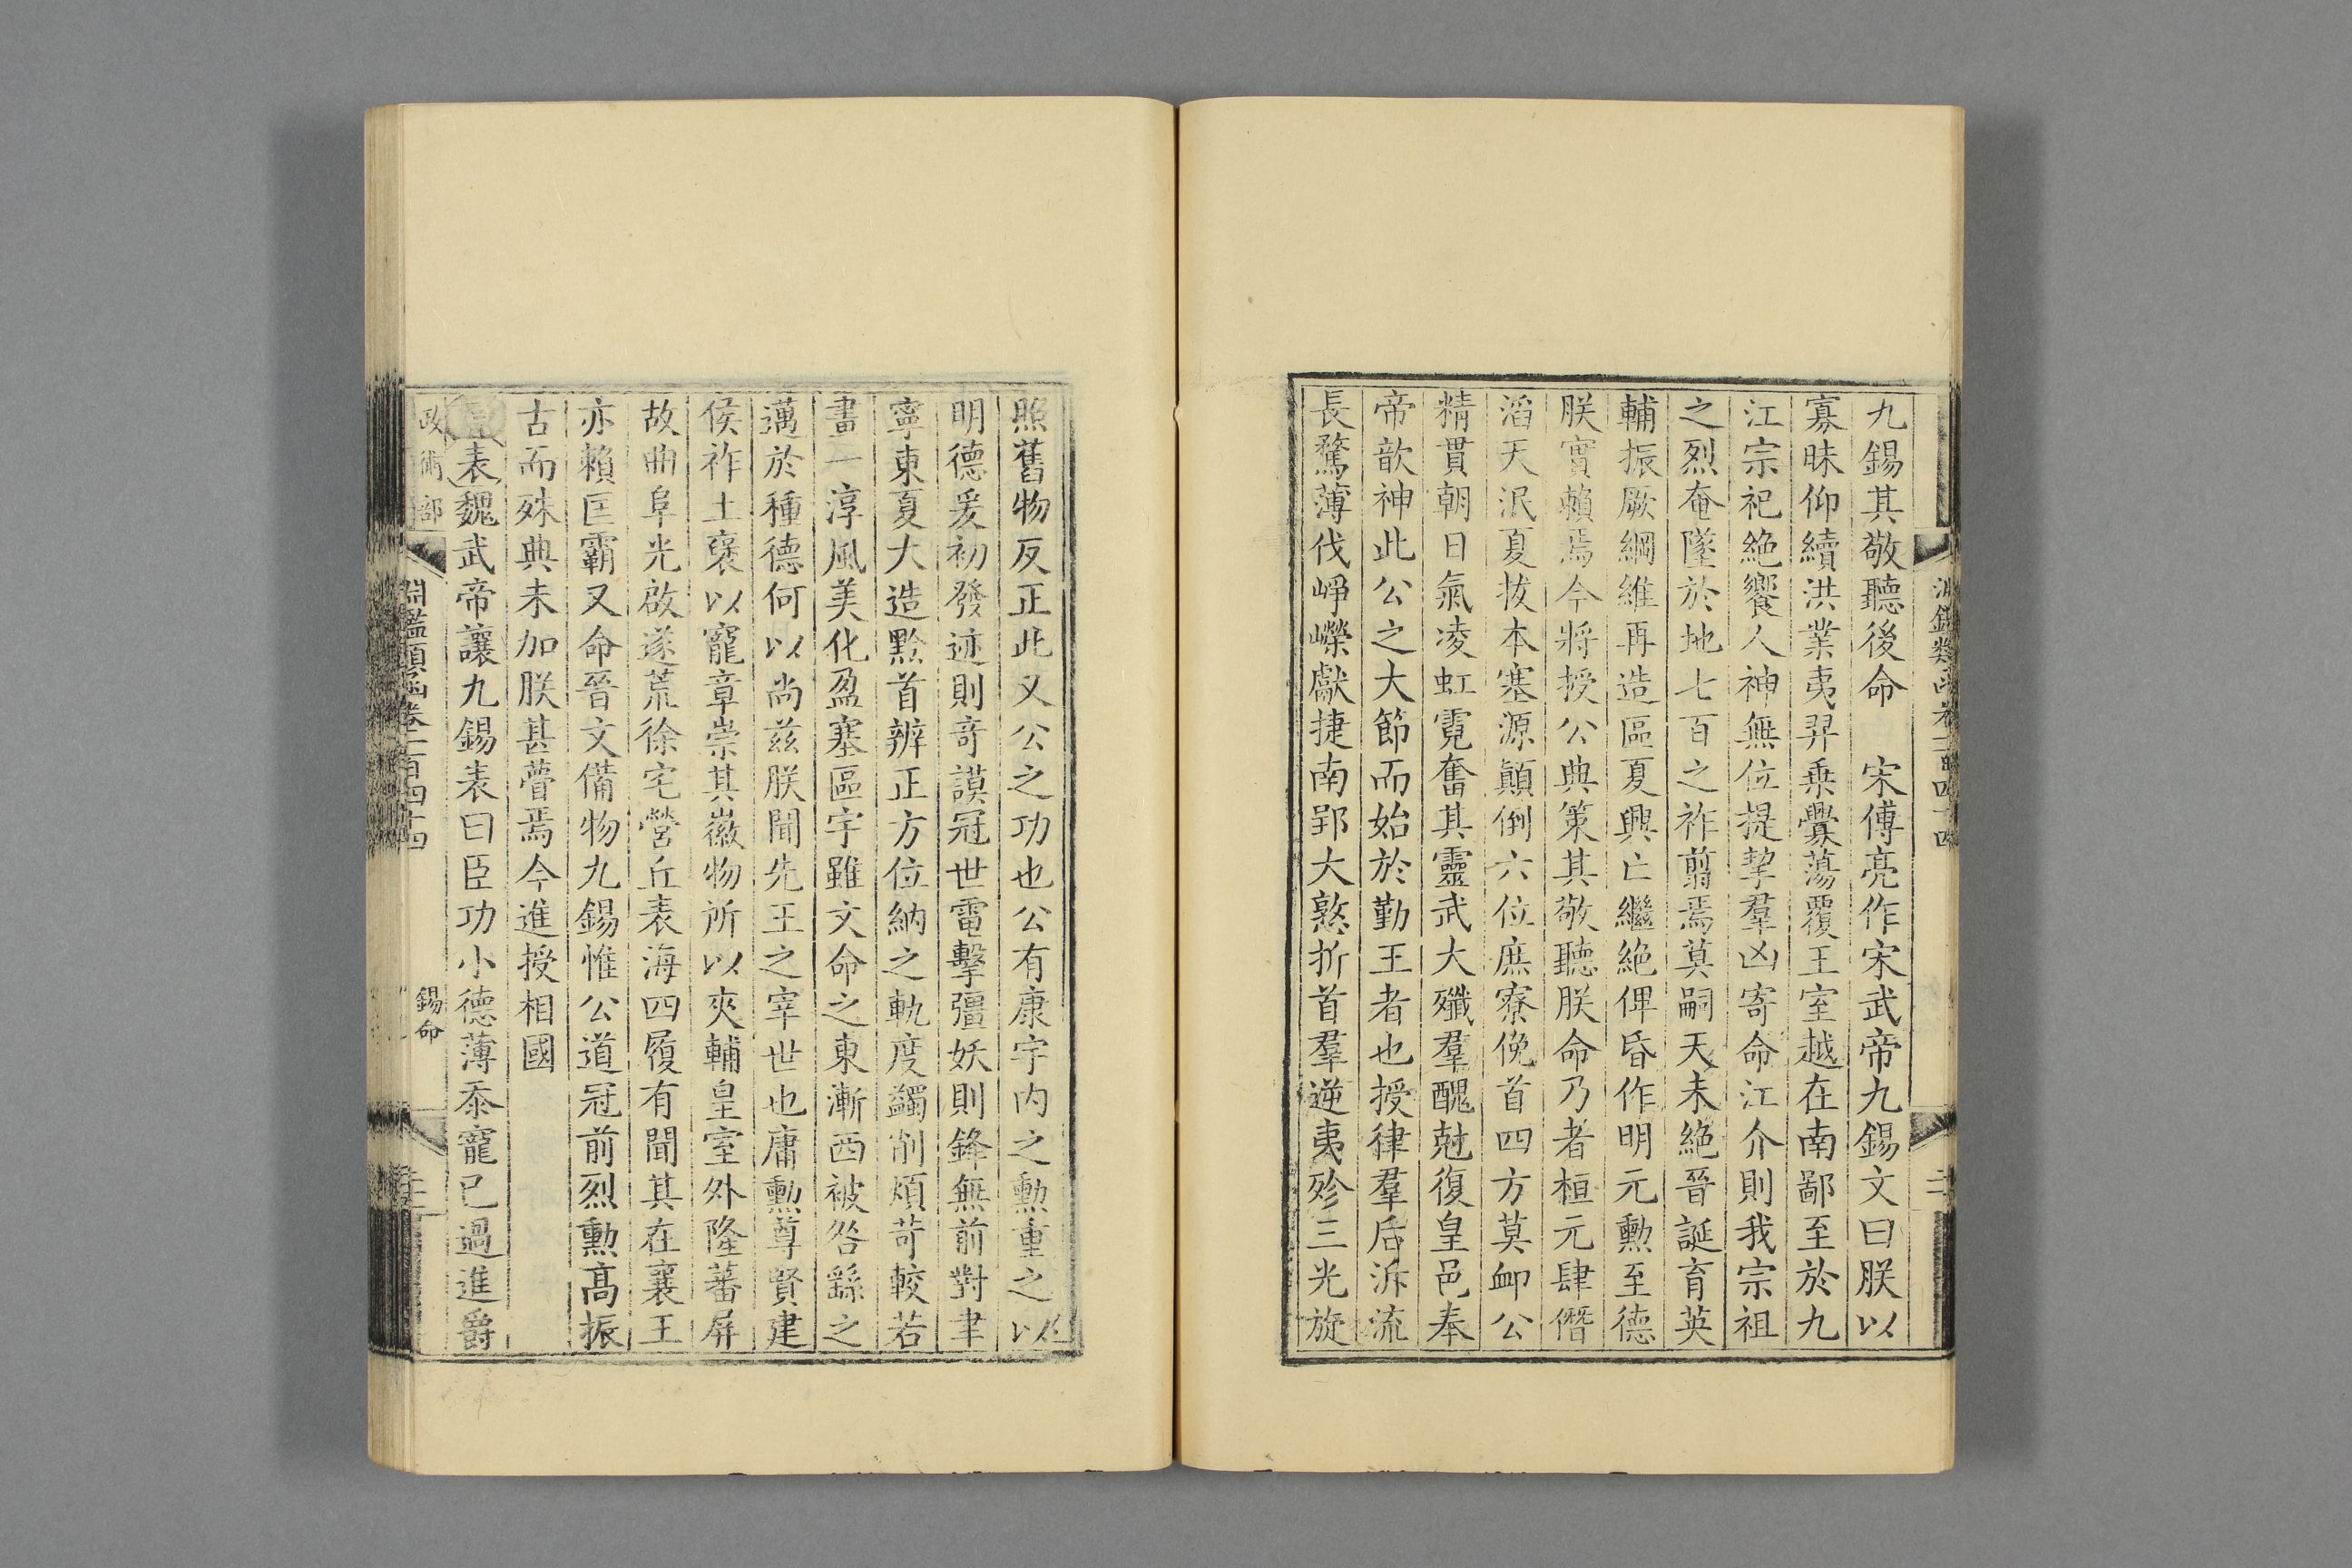 九錫其敬聽後命　宋傅亮作宋武帝九錫文曰朕以
寡昧仰續洪業夷羿乗釁蕩覆王室越在南鄙至於九
江宗祀絶饗人神無位提挈羣凶寄命江介則我宗祖
之烈奄墜於地七百之祚翦焉莫嗣天未絶晉誕育英
輔振厥綱維再造區夏興亡繼絶俾昏作明元勳至德
朕實賴焉今將授公典策其敬聽朕命乃者桓元肆僭
滔天泯夏拔本塞源顛倒六位庶寮俛首四方莫卹公
精貫朝日氣凌虹霓奮其靈武大殲羣醜尅復皇邑奉
帝歆神此公之大節而始於勤王者也授律羣后泝流
長騖薄伐崢嶸獻捷南郢大憝折首羣逆夷殄三光旋
照舊物反正此又公之功也公有康宇内之勳重之以
明德爰初發迹則竒謨冠世電擊彊妖則鋒無前對聿
寧東夏大造黔首辨正方位納之軌度蠲削煩苛較若
畫一淳風美化盈塞區宇雖文命之東漸西被咎繇之
邁於種德何以尚兹朕聞先王之宰世也庸勳尊賢建
侯祚土褒以寵章崇其徽物所以夾輔皇室外隆蕃屏
故曲阜光啟遂荒徐宅營丘表海四履有聞其在襄王
亦賴匡霸又命晉文備物九錫惟公道冠前烈勳髙振
古而殊典未加朕甚瞢焉今進授相國
表魏武帝讓九錫表曰臣功小德薄忝寵已過進爵
政術部
淵鑑類函卷一百四十四
錫命